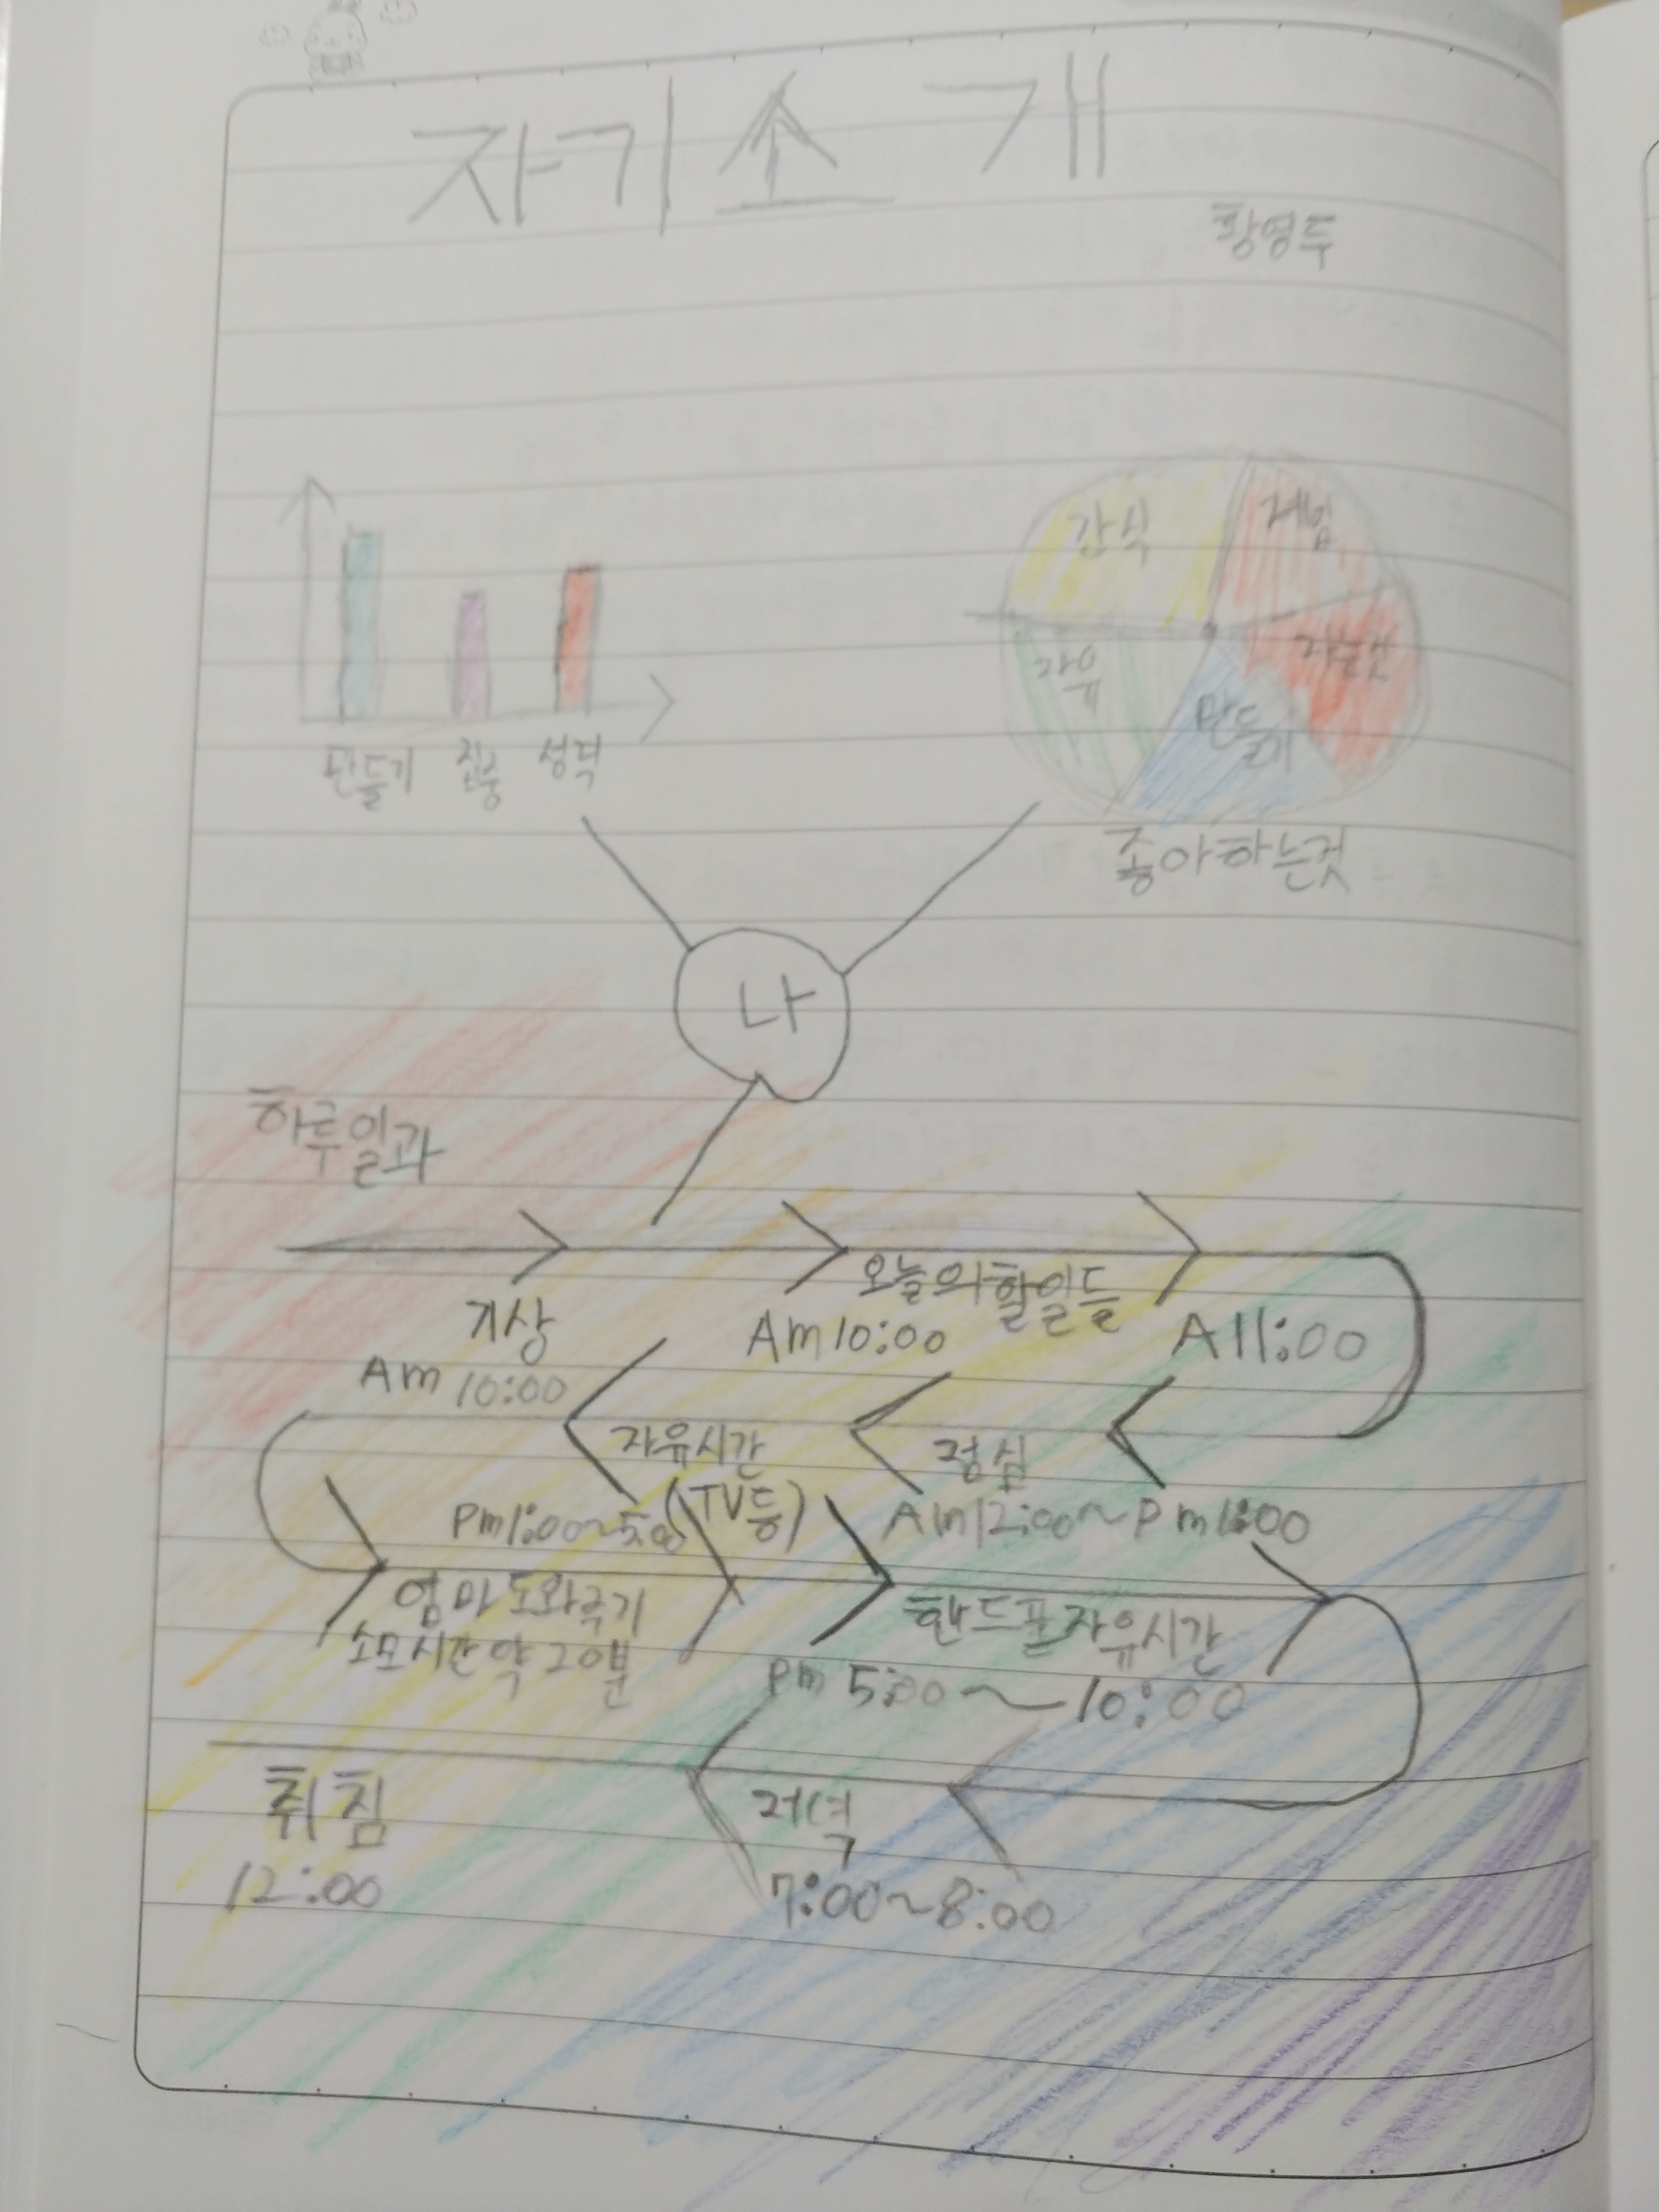 자기소개
황영두
간식
게임
자유
만들기
만들기 집중 성적
좋아하는것
나
하루일과
오늘의할일들
기상
Am 10:00
Am 10:00
A 11:00
자유시간
점심
Pm1:00~5:00 (TV등)
Am12:00~Pm1:00
엄마도와주기
소모시간약20분
핸드폰자유시간
Pm 5:00~10:00
취침
12:00
저녁
7:00~8:00